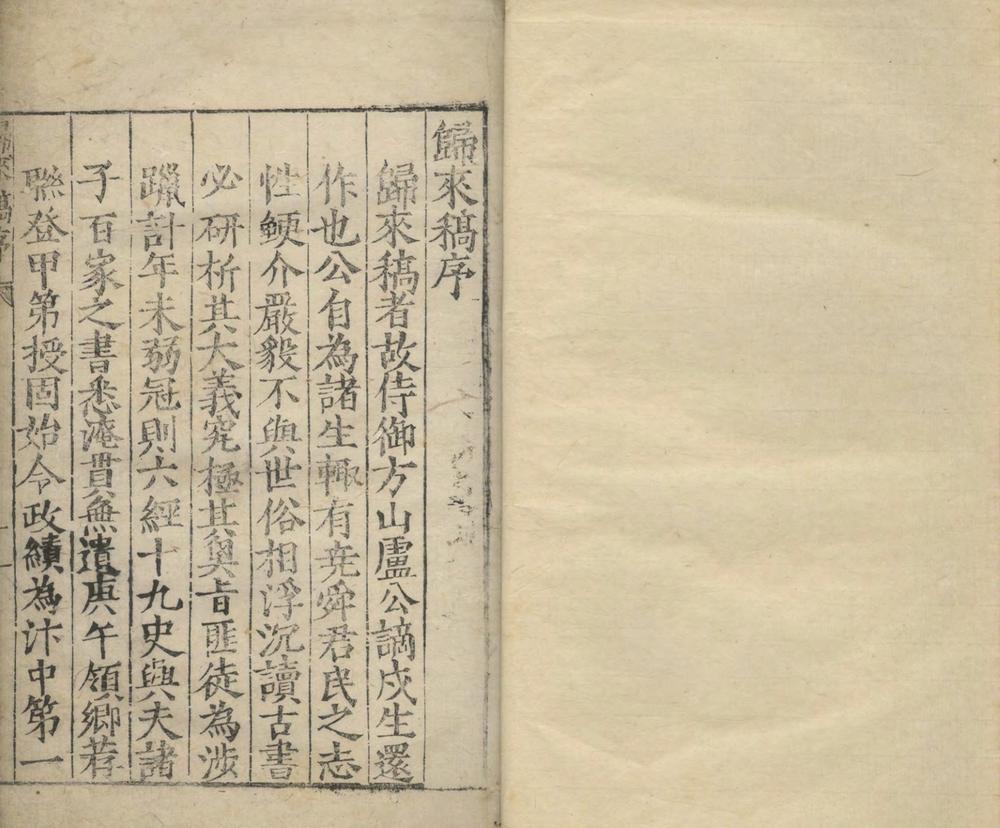 歸來稿序
歸來稿者故侍御方山盧公謫戍生還
作也公自為諸生輙有堯舜君民之志
性鯁介嚴毅不與世俗相浮沉讀古書
必研析其大義究極其奥旨匪徒為涉
躐計年未弱冠則六經十九史與夫諸
子百家之書悉淹貫無遺庚午領鄉薦
聯登甲第授固始令政績為汴中第一
歸來稿序